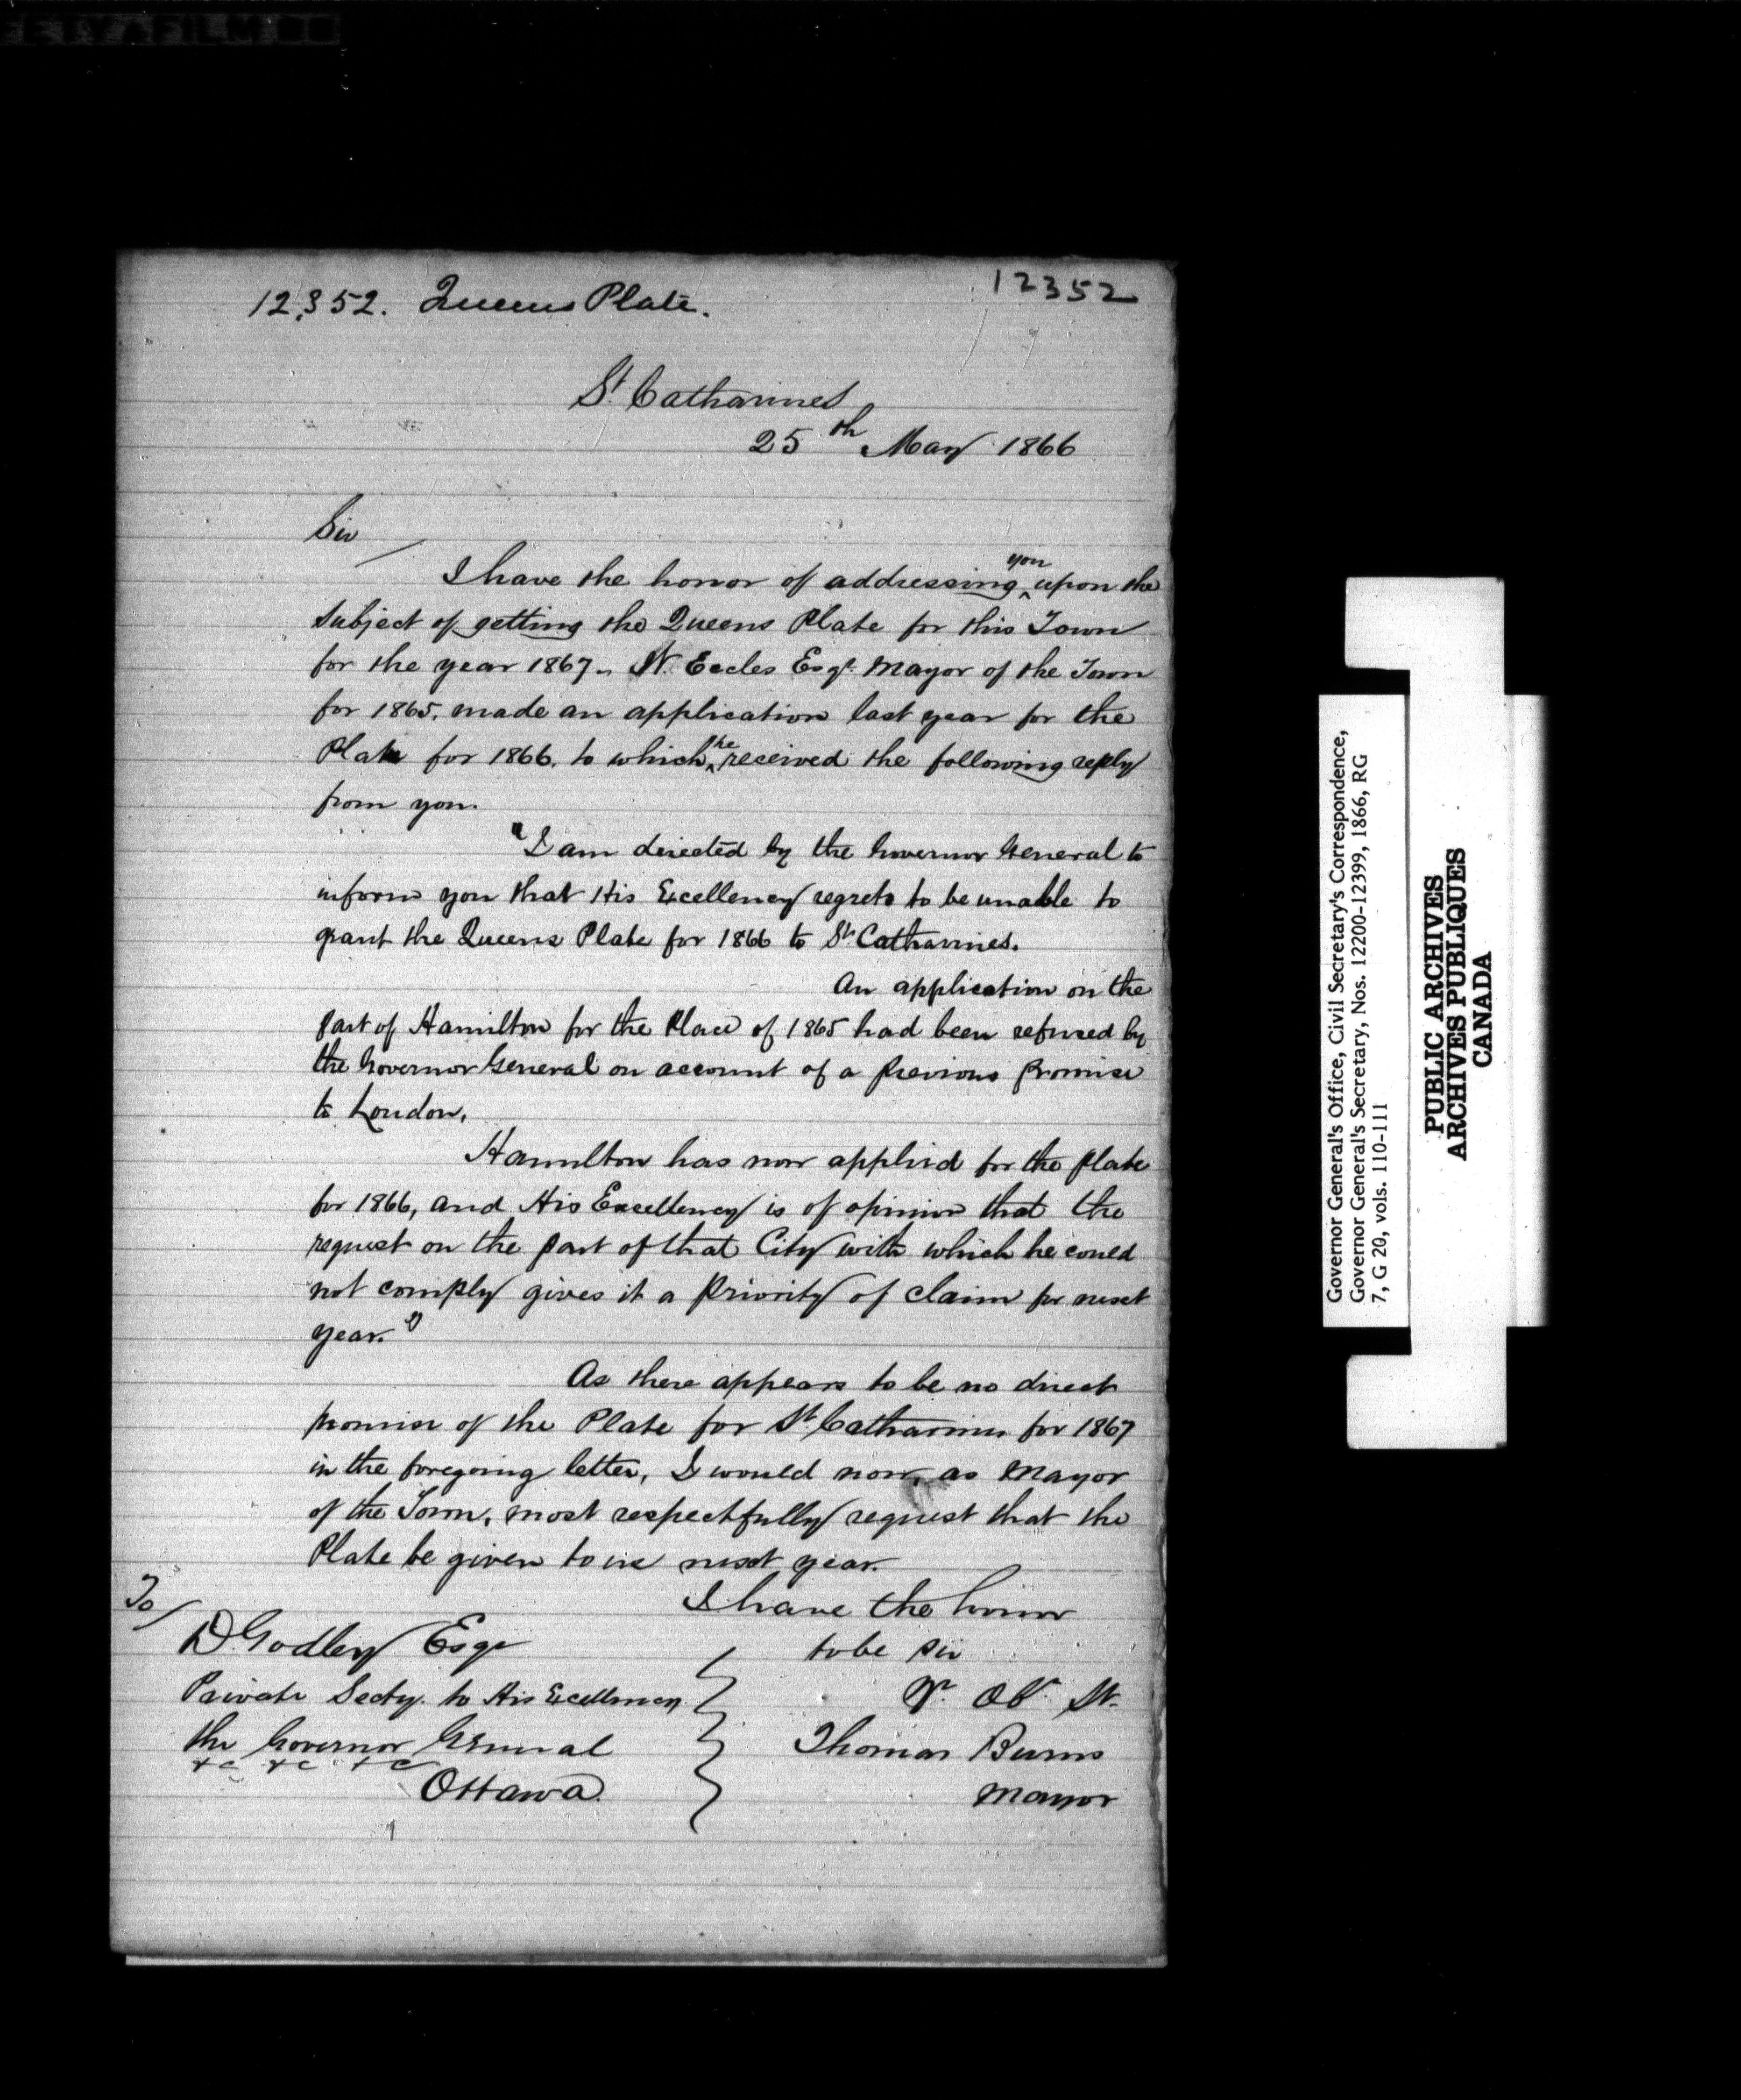 12352
12,352. Queens Plate.
St. Catharines
25th May 1866
Sir
I have the honor of addressing you upon the
subject of getting the Queens Plate for this Town
for the year 1867. W. Eccles Esqr. Mayor of the Town
for 1865, made an application last year for the
Plate for 1866. to which he received the following reply
from you.
"I am directed by the Governor General to
inform you that His Excellency regrets to be unable to
grant the Queens Plate for 1866 to St. Catharines.
An application on the
part of Hamilton for the Place of 1865 had been refused by
the Governor General on account of a previous promise
to London.
Hamilton has now applied for the plate
for 1866, and His Excellency is of opinion that the
request on the part of that City with which he could
not comply gives it a priority of claim for next
year."
As there appears to be no direct
promise of the Plate for St. Catharines for 1867
in the foregoing letter, I would now, as Mayor
of the Town, most respectfully request that the
Plate be given to us next year.
I have the honor
to be Sir
Yr. Ob. St.
Thomas Burns
Mayor
To
D. Godley Esqr
Private Secty. to His Excellency
the Governor General
&c &c &c
Ottawa.
Governor General's Office, Civil Secretary's Correspondence,
Governor General's Secretary, Nos. 12200-12399, 1866, RG
7, G 20, vols. 110-111
PUBLIC ARCHIVES
ARCHIVES PUBLIQUES
CANADA